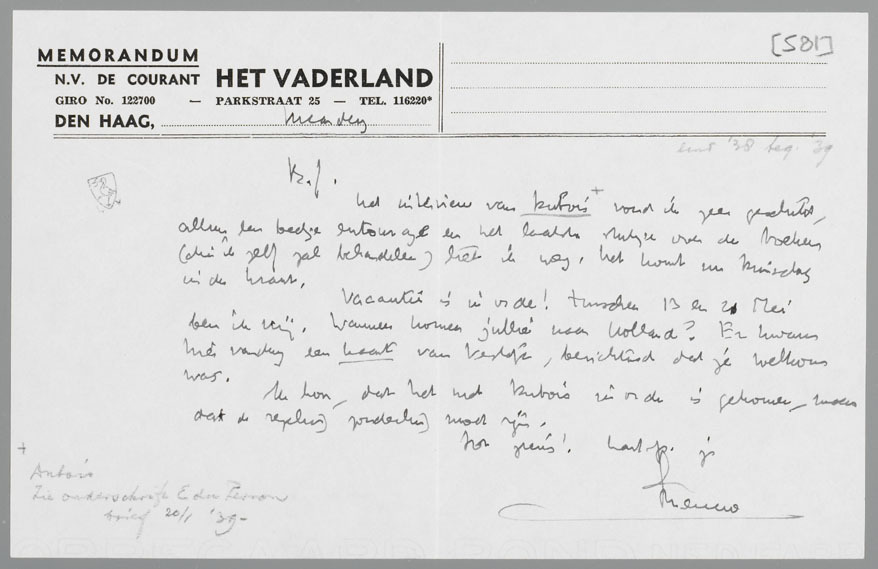 [581]
MEMORANDUM
N.V. DE COURANT HET VADERLAND
GIRO No. 122700 — PARKSTRAAT 25 — TEL. 116220*
DEN HAAG, Maandag
eind '38 beg. '39
B.J.
Het interview van Dubois + vond ik zeer geschikt,
alleen een beetje entourage en het laatste stukje over de boeken
(die ik zelf zal behandelen) liet ik weg. Het komt nu Dinsdag
in de krant.
Vacantie is in orde! Tusschen 13 en 21 Mei
ben ik vrij. Wanneer komen jullie naar Holland? Er kwam
hier vandaag een kaart van , berichtend dat je welkom
was.
Ik hoor, dat het met Dubois in orde is gekomen, maar
dat de zijn.
Tot ziens! hart. gr. je
Menno
+
Zie onderschrift E du Perron
brief 20/1 '39-